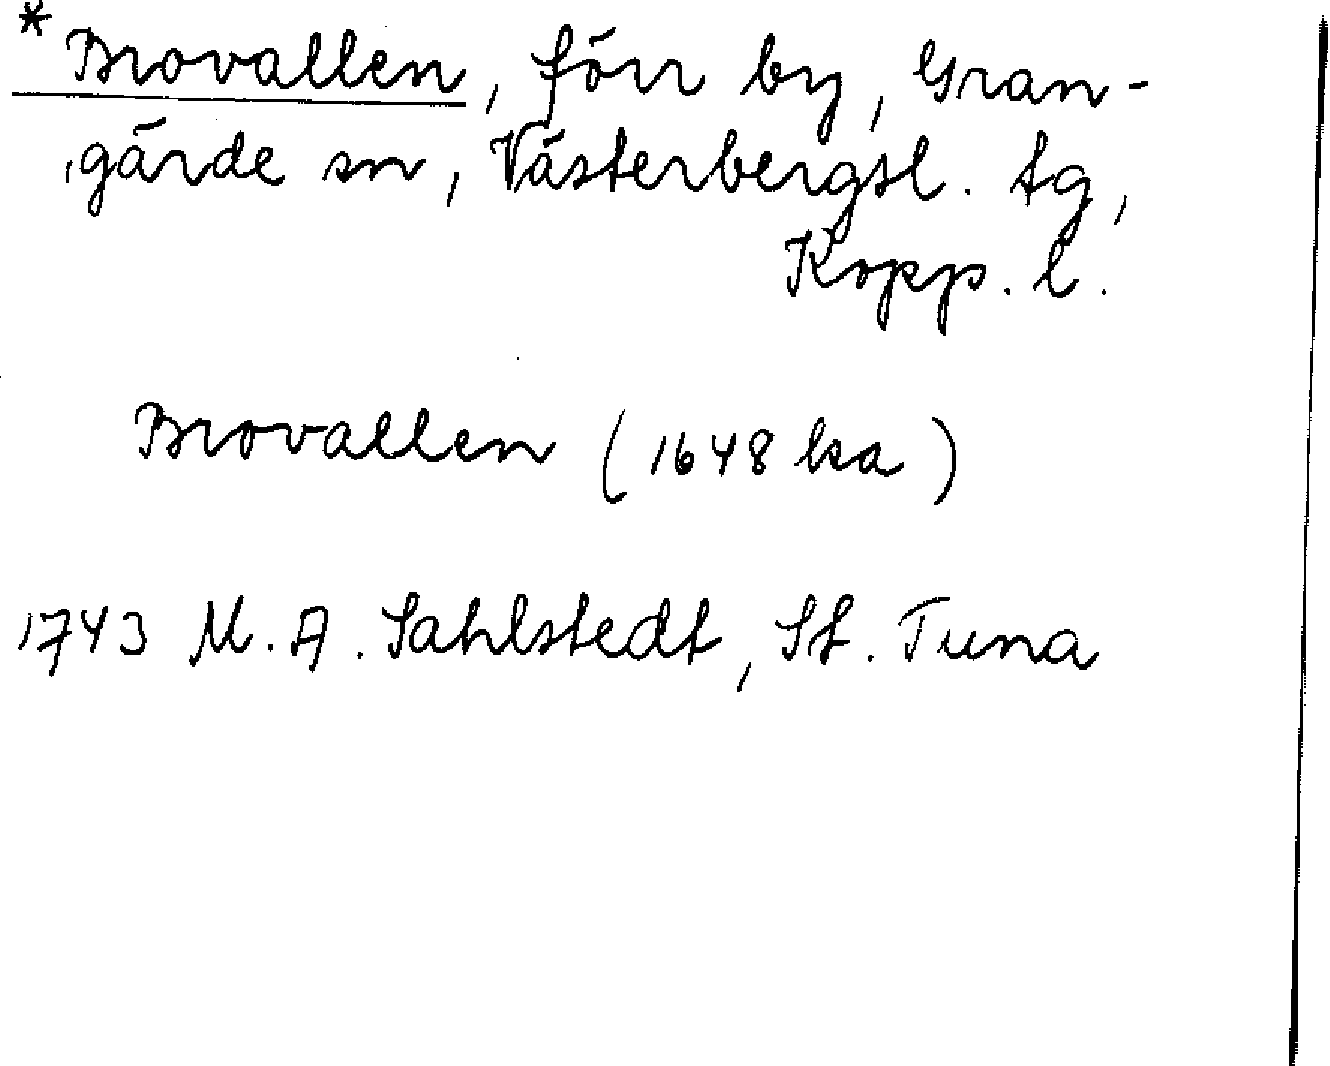 *Brovallen, förr by, Gran-
gärde sn, Västerbergsl. tg,
Kopp. l.
Brovallen (1648 ksa)
1743 M. A. Sahlstedt, St. Tuna